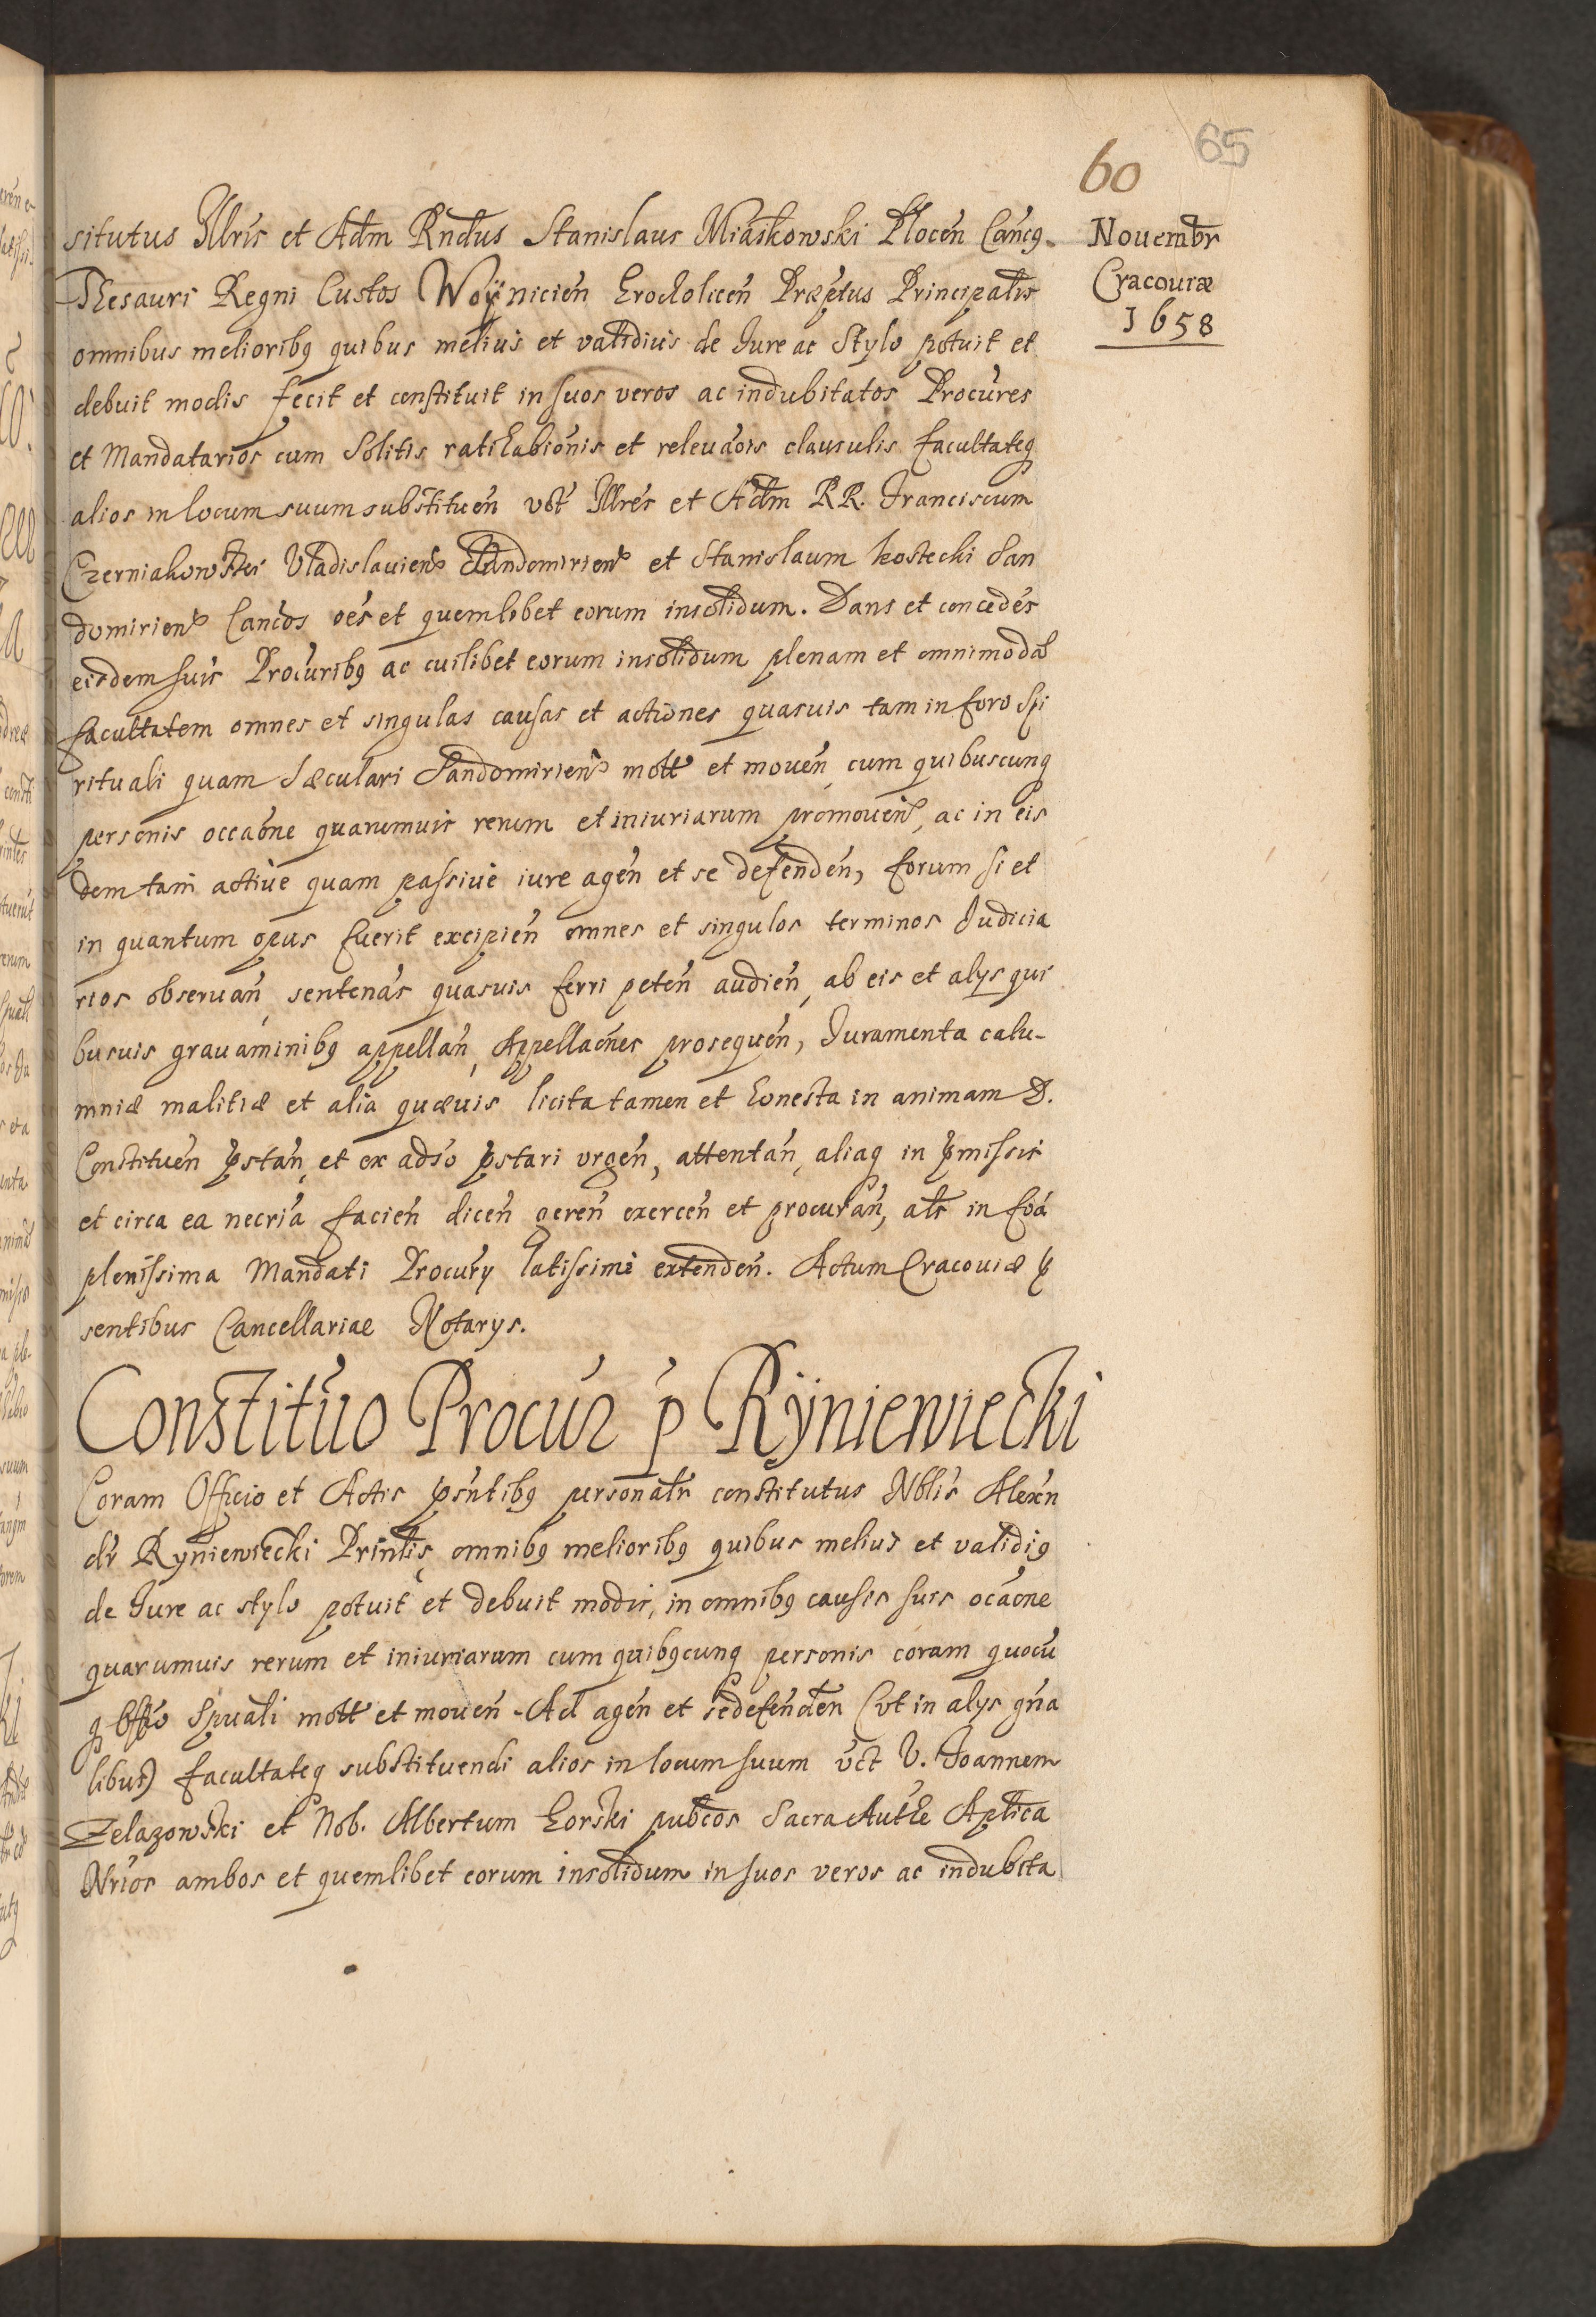 60
65
Nouembr
Cracouiæ
1658
situtus Illris et Adm Rndus Stanislaus Miaskowski Plocen Cancq
Thesauri Regni Custos Woÿnicien Præptus Principalis
omnibus melioribq quibus melius et validius de Iure ac Stylo potuit et
debuit modis fecit et constituit in suos veros ac indubitatos Procures
et Mandatarios cum Solitis ratihabionis et releuaois clausulis facultateq
alios in locum suum substituen vct Illres et Adm RR. Franciscum
Czerniakowski Vladislauien Sandomirien et Stanislaum Kostecki San
domirien Cancos oes et quemlibet eorum insolidum. Dans et concedes
eisdem suis Procuribq ac cuilibet eorum insolidum plenam et omnimoda
facultatem omnes et singulas causas et actiones quasuis tam in foro Spi
rituali quam Sæculari Sandomirien mott et mouen, cum quibuscunq
personis occaone quarumuis rerum et iniuriarum promouen, ac in eis
dem tam actiue quam passiue iure agen et se defenden, forum si et
in quantum opus fuerit excipien omnes et singulos terminos Iudicia
rios obseruan, sentenas quasuis ferri peten audien, ab eis et alys qui
busuis grauaminibq appellan, Appellaones prosequen, Iuramenta calu-
mniæ malitiæ et alia quæuis licita tamen et honesta in animam D.
Constituen pstan, et ex adso pstari vrgen, attentan, aliaq in pmissis
et circa ea necria facien dicen geren exercen et procuran, als in foa
plenissima Mandati Procury latissime extenden. Actum Cracouiæ p
sentibus Cancellariae Notarys.
Constituo Procur p Rÿniewiecki
Coram Officio et Actis psntibq personalr constitutus Nblis Alexn
dr Ryniewiecki Prinlis, omnibq melioribq quibus melius et validiq
de Iure ac stylo potuit et debuit modis, in omnibq causis suis ocaone
quarumuis rerum et iniuriarum cum quibqcunq personis coram quocu
q Offio Spuali mott et mouen - Ad agen et se defenden (vt in alys gna
libus) facultateq substituendi alios in locum suum vct V. Joannem
Zelazowski et Nob. Albertum Gorski pubcos Sacra Authe Aplica
Nrios ambos et quemlibet eorum insolidum in suos veros ac indubita